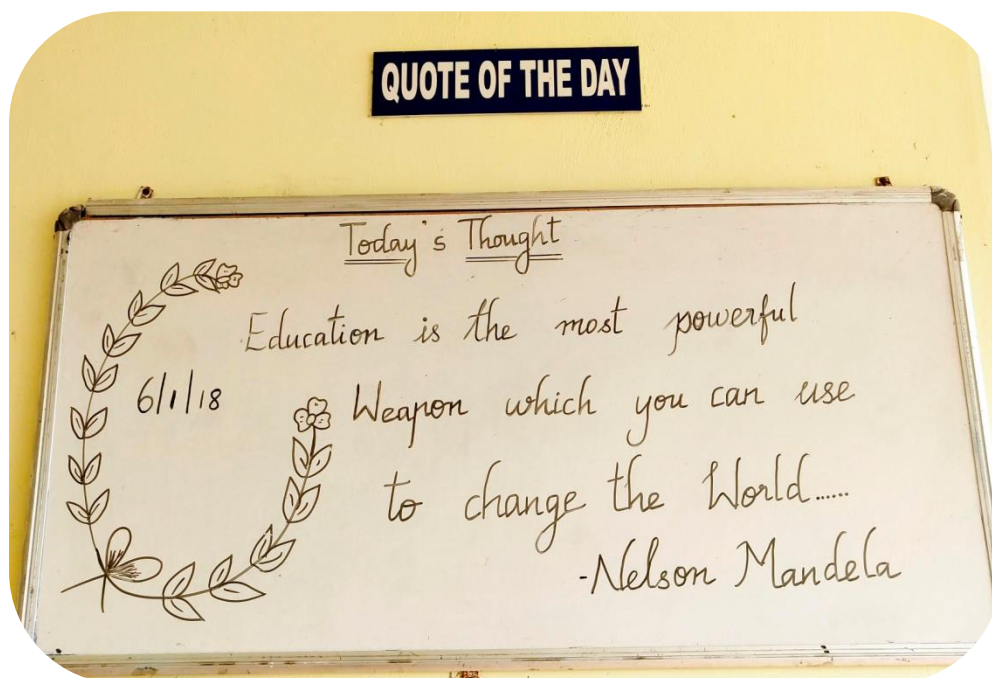 QUOTE OF THE DAY
Today's Thought
Education is the most powerful
6/1/18
Weapon which you can use
to change the World......
-Nelson Mandela